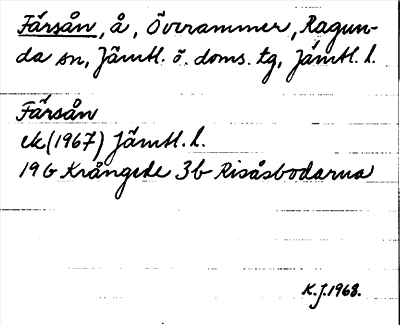 Fårsån, å, Överammer, Ragun-
da sn, Jämtl. ö. doms. tg, Jämtl. l.
Fårsån
ek (1967) Jämtl. l.
19G Krångede 3b Risåsbodarna
K.J. 1968.